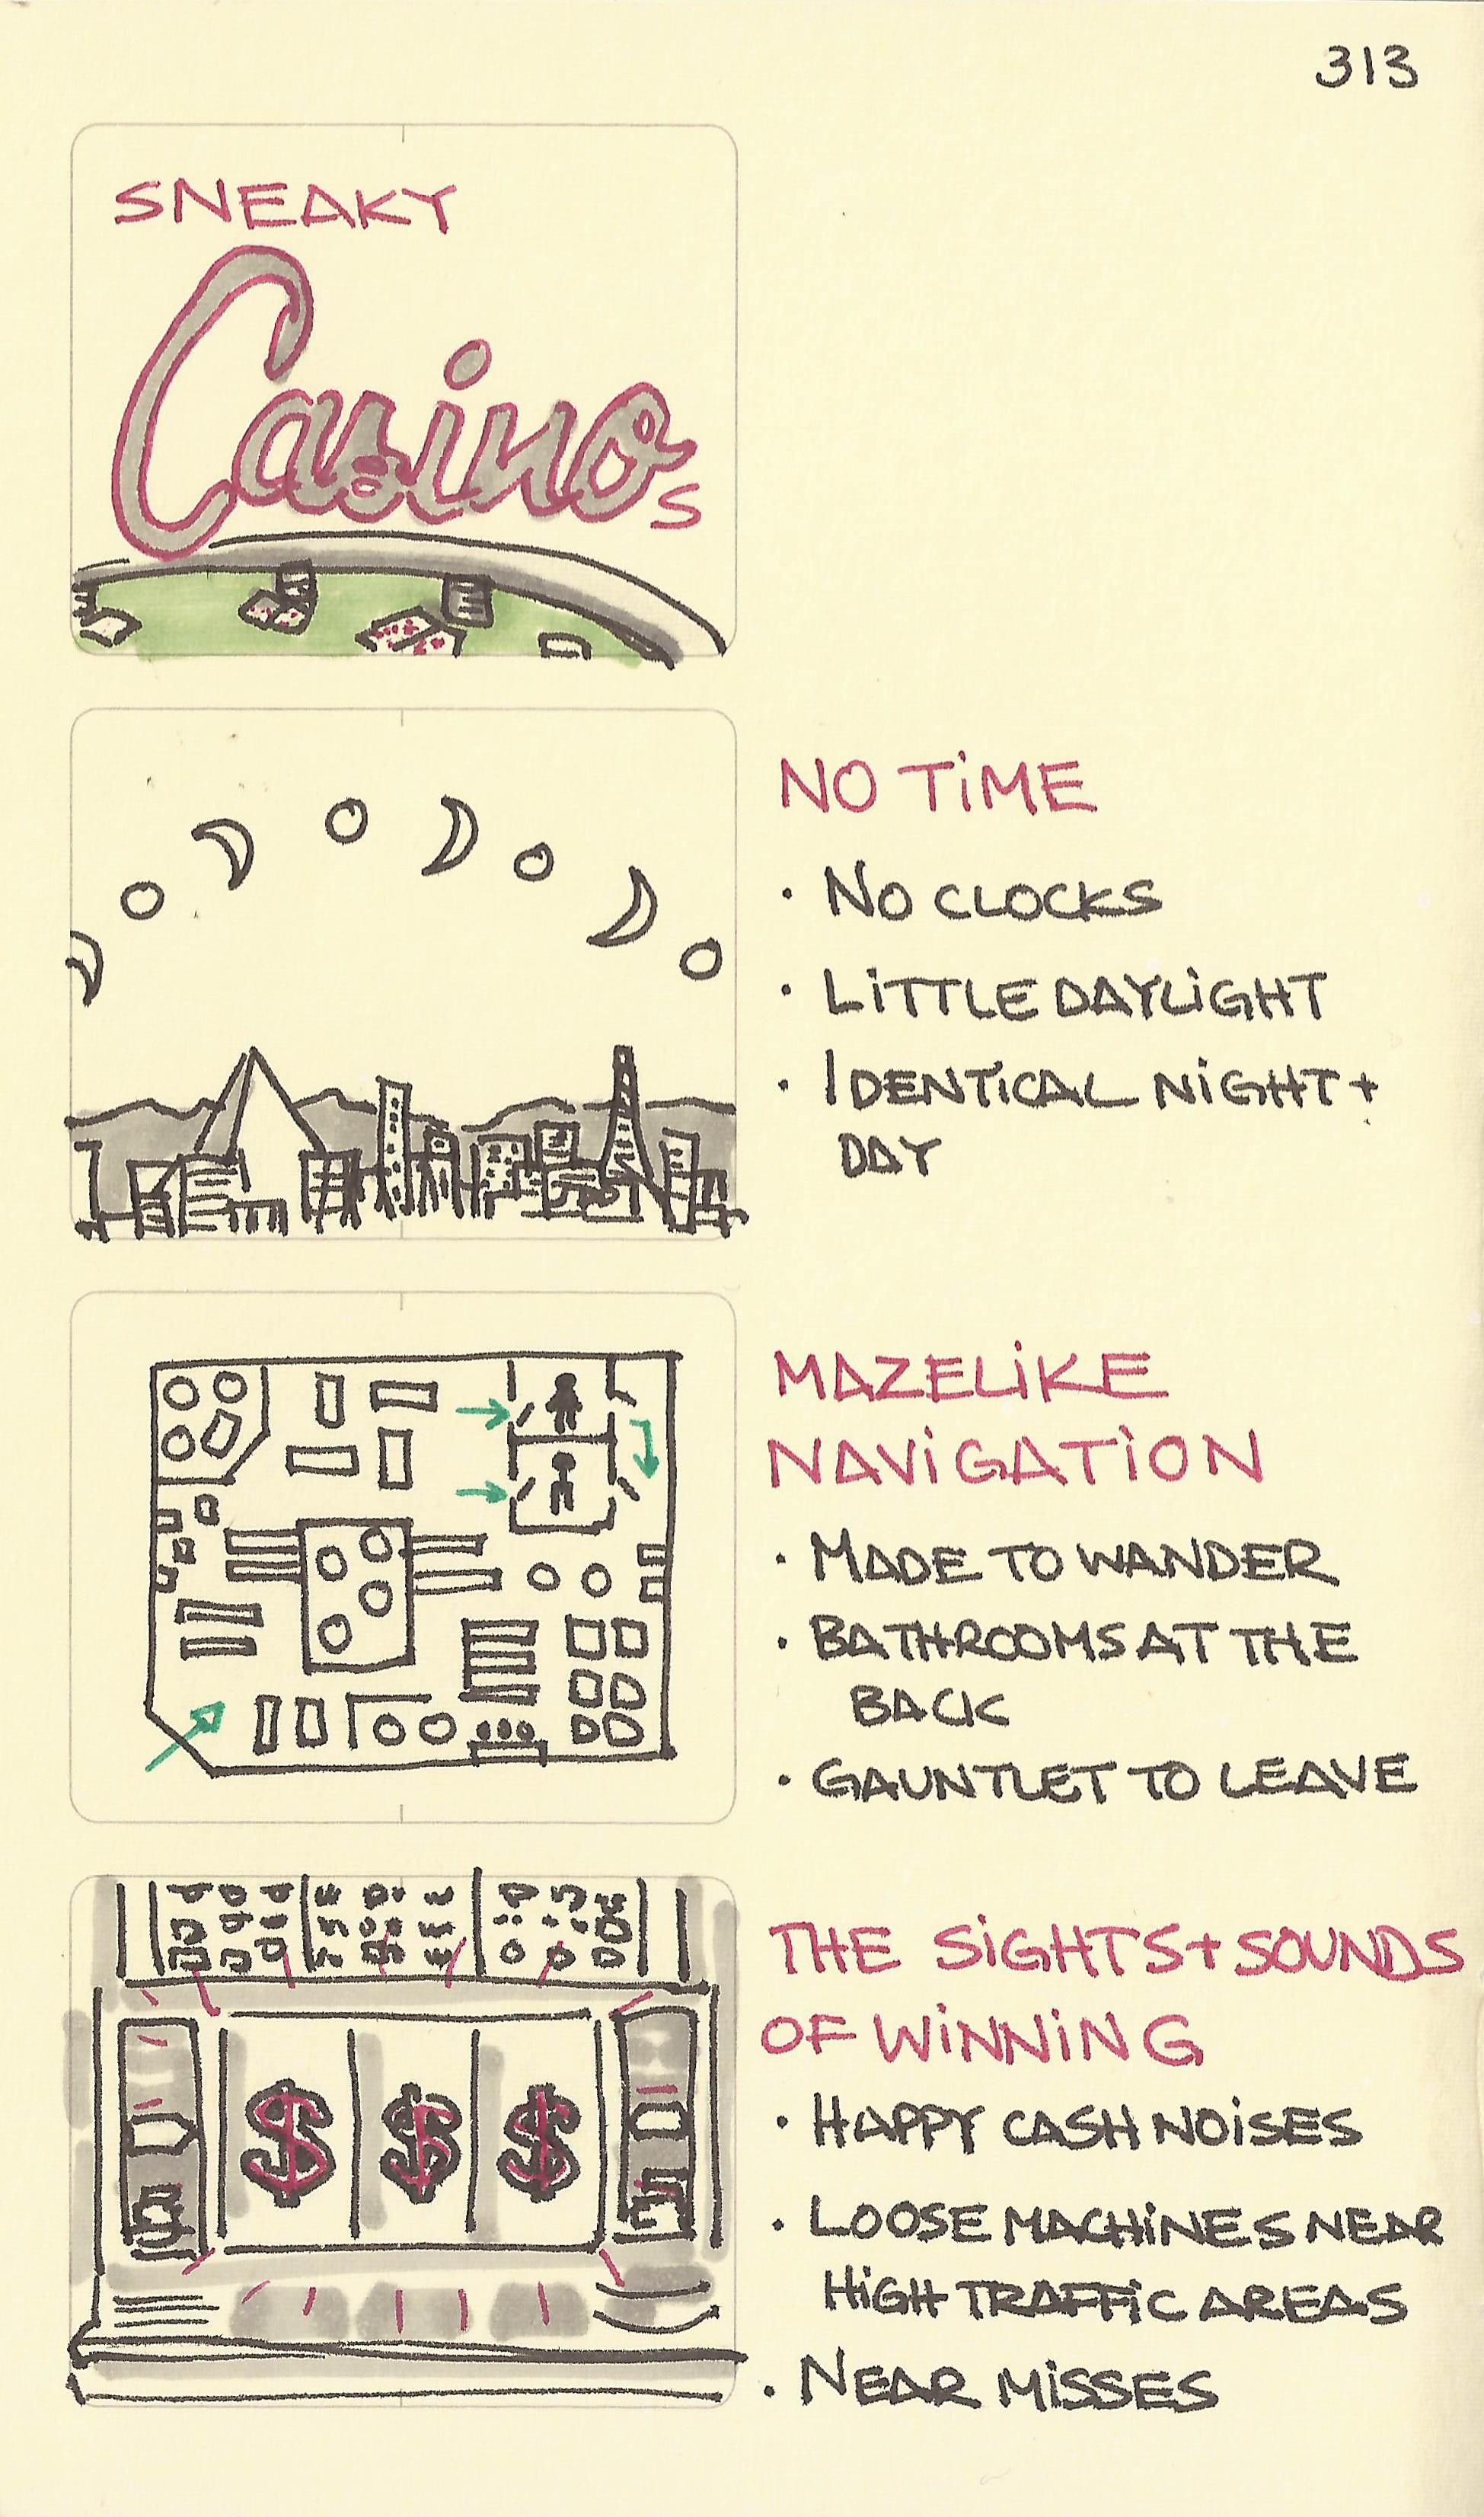 313
SNEAKY
Casinos
NO TiME
· NO CLOCKS
· LiTTLE DAYLiGHT
· IDENTiCAL NiGHT +
DAY
MAZELiKE
NAViGATiON
· MADE TO WANDER
· BATHROOMS AT THE
BACK
· GAUNTLET TO LEAVE
THE SiGHTS + SOUNDS
OF WiNNiNG
· HAPPY CASH NOiSES
· LOOSE MACHiNES NEAR
HiGH TRAFFiC AREAS
· NEAR MiSSES
$ $ $